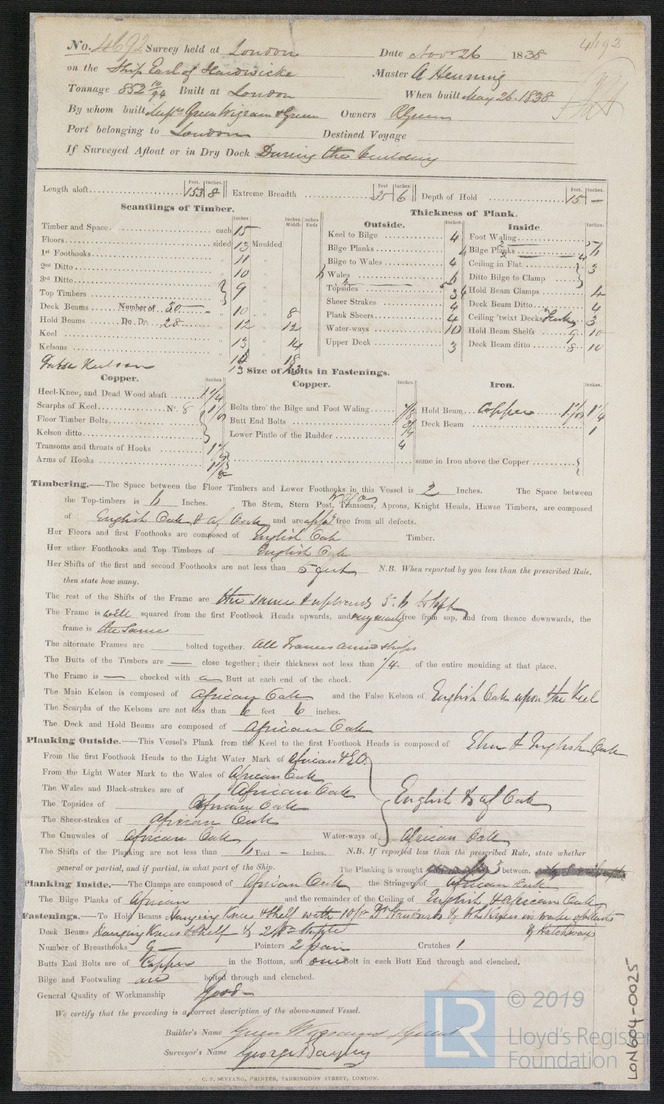 No. 4692 Survey held at London Date Novr 26 1838
4692
on the Ship Earl of Hardwicke Master A Henning
Tonnage 852 10/94 Built at London When built May 26. 1838
By whom built Messrs Green Wigram & Green Owners R Green
Port belonging to London Destined Voyage
If Surveyed Afloat or in Dry Dock During the building
Length aloft 153 8 Extreme Breadth 35 6 Depth of Hold 15 —
Scantlings of Timber. Thickness of Plank.
Outside. Inside.
Timber and Space each 15
Floors sided 13 Moulded
1st Foothooks 11
2nd Ditto 10
3rd Ditto
Top Timbers 9
Deck Beams Number of 30 10 8
Hold Beams Do. Do. 28 12 12
Keel 13 14
Kelsons 18
False Keelson
Keel to Bilge 4
Bilge Planks
Bilge to Wales 4
Wales
Topsides
Sheer Strakes 4
Plank Sheers 4
Water-ways 10
Upper Deck 3
Foot Waling
Bilge Planks
Ceiling in Flat 3
Ditto Bilge to Clamp
Hold Beam Clamps 4
Deck Beam Ditto 4
Ceiling 'twixt Decks 3
Hold Beam Shelfs 9 10
Deck Beam ditto 8 10
Size of Bolts in Fastenings.
Copper. Copper. Iron.
Heel-Knee, and Dead Wood abaft 1 1/4
Scarphs of Keel No. 8
Floor Timber Bolts
Kelson ditto
Transoms and throats of Hooks
Arms of Hooks
Bolts thro' the Bilge and Foot Waling
Butt End Bolts
Lower Pintle of the Rudder
Hold Beam Copper 1 1/4
Deck Beam 1
same in Iron above the Copper
Timbering.—The Space between the Floor Timbers and Lower Foothooks in this Vessel is 2 Inches. The Space between
the Top-timbers is 6 Inches. The Stem, Stern Post, Transoms, Aprons, Knight Heads, Hawse Timbers, are composed
of English Oak & Af Oak and are free from all defects.
Her Floors and first Foothooks are composed of English Oak Timber.
Her other Foothooks and Top Timbers of English Oak
Her Shifts of the first and second Foothooks are not less than 5 feet N.B. When reported by you less than the prescribed Rule,
then state how many.
The rest of the Shifts of the Frame are the same & upwards
The Frame is well squared from the first Foothook Heads upwards, and very nearly free from sap, and from thence downwards, the
frame is the same
The alternate Frames are bolted together. All Frames
The Butts of the Timbers are — close together; their thickness not less than 1/4 of the entire moulding at that place.
The Frame is — chocked with a Butt at each end of the chock.
The Main Kelson is composed of African Oak and the False Kelson of English Oak upon the Keel
The Scarphs of the Kelsons are not less than 6 feet 6 inches.
The Deck and Hold Beams are composed of African Oak
Planking Outside.—This Vessel's Plank from the Keel to the first Foothook Heads is composed of Elm & English Oak
From the first Foothook Heads to the Light Water Mark of African & EO
From the Light Water Mark to the Wales of African Oak
The Wales and Black-strakes are of African Oak
English & Af Oak
The Topsides of African Oak
The Sheer-strakes of African Oak
The Gunwales of African Oak Water-ways of African Oak
The Shifts of the Planking are not less than 6 Feet — Inches. N.B. If reported less than the prescribed Rule, state whether
general or partial, and if partial, in what part of the Ship. The Planking is wrought between.
Planking Inside.—The Clamps are composed of African Oak the Stringers of African Oak
The Bilge Planks of African and the remainder of the Ceiling of English & African Oak
Fastenings.—To Hold Beams Hanging Knees & Shelf with
Deck Beams Hanging Knees & Shelf
Number of Breasthooks 9 Pointers 2 pair Crutches 1
Butts End Bolts are of Copper in the Bottom, and one Bolt in each Butt End through and clenched.
Bilge and Footwaling are bolted through and clenched.
General Quality of Workmanship Good
We certify that the preceding is a correct description of the above-named Vessel.
Builder's Name Green Wigrams & Green
Surveyor's Name George Bayley
C. F. SEYFANG, PRINTER, FARRINGDON STREET, LONDON.
LR
© 2019
Lloyd's Register
Foundation
LON604-0025